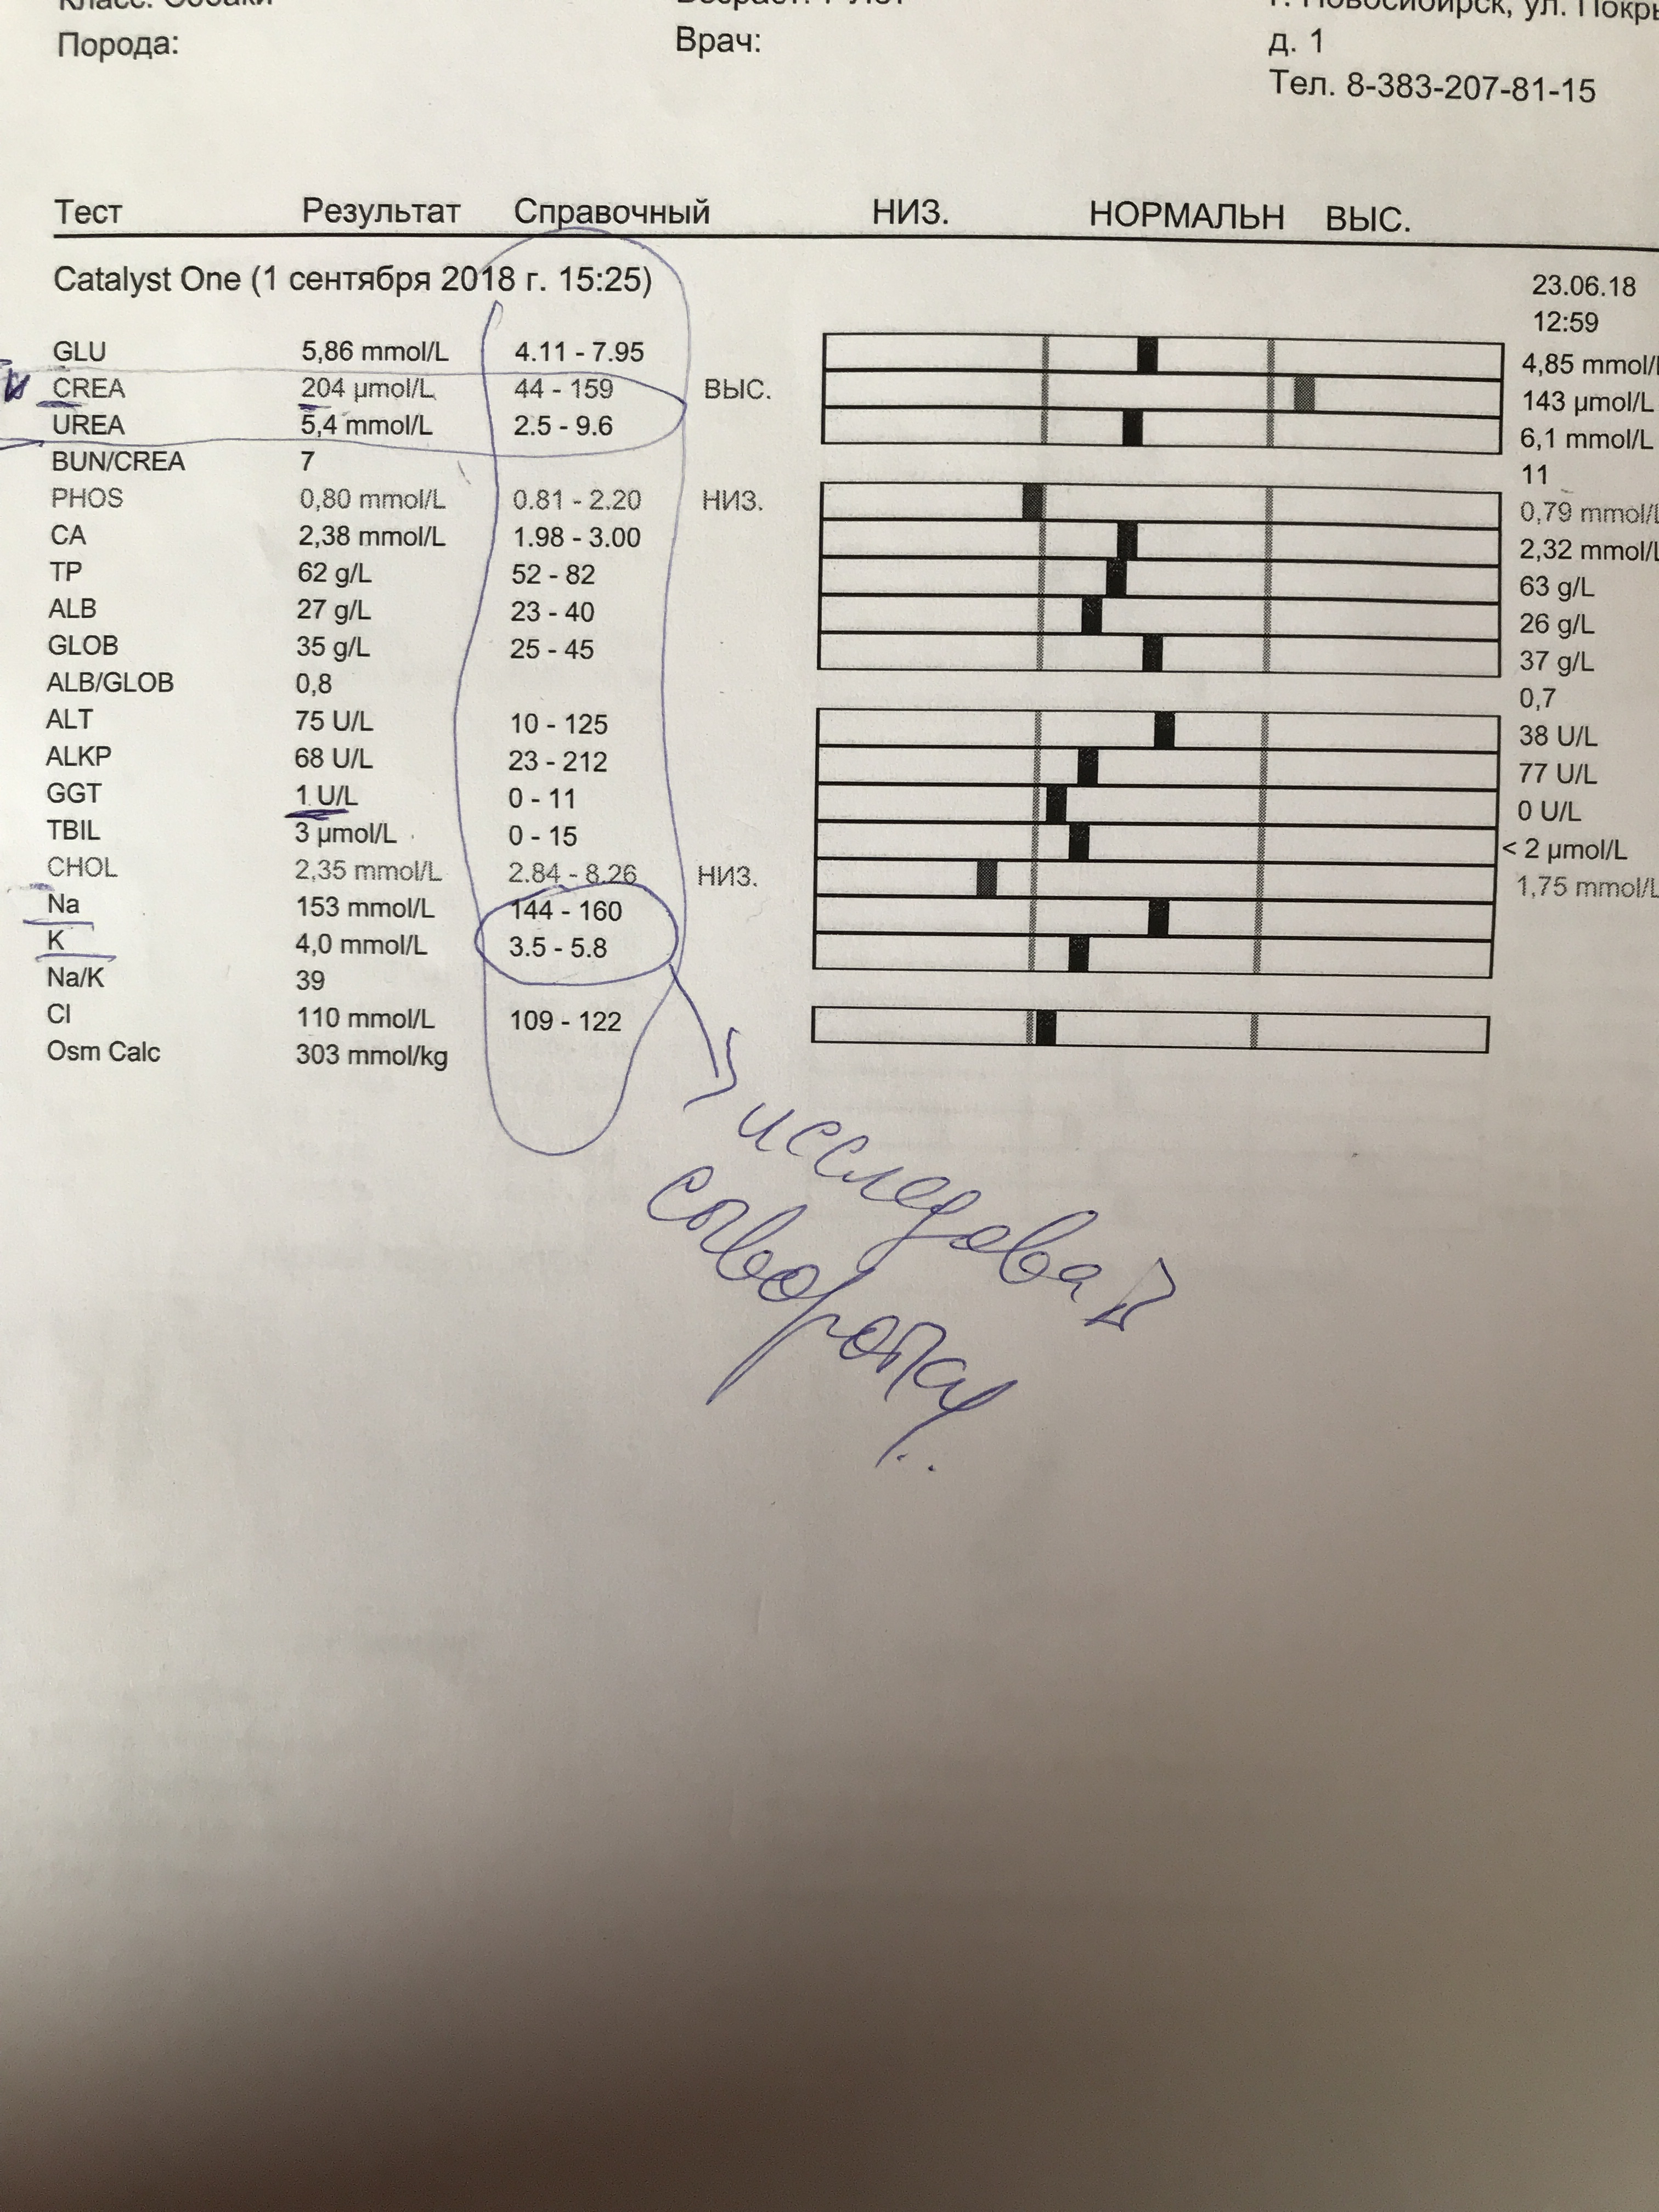 Класс: Собаки
Порода:
Врач:
г. Новосибирск, ул. Покры
д. 1
Тел. 8-383-207-81-15
Тест Результат Справочный НИЗ. НОРМАЛЬН ВЫС.
Catalyst One (1 сентября 2018 г. 15:25) 23.06.18
12:59
GLU 5,86 mmol/L 4.11 - 7.95 4,85 mmol/L
CREA 204 µmol/L 44 - 159 ВЫС. 143 µmol/L
UREA 5,4 mmol/L 2.5 - 9.6 6,1 mmol/L
BUN/CREA 7 11
PHOS 0,80 mmol/L 0.81 - 2.20 НИЗ. 0,79 mmol/L
CA 2,38 mmol/L 1.98 - 3.00 2,32 mmol/L
TP 62 g/L 52 - 82 63 g/L
ALB 27 g/L 23 - 40 26 g/L
GLOB 35 g/L 25 - 45 37 g/L
ALB/GLOB 0,8 0,7
ALT 75 U/L 10 - 125 38 U/L
ALKP 68 U/L 23 - 212 77 U/L
GGT 1 U/L 0 - 11 0 U/L
TBIL 3 µmol/L 0 - 15 < 2 µmol/L
CHOL 2,35 mmol/L 2.84 - 8.26 НИЗ. 1,75 mmol/L
Na 153 mmol/L 144 - 160
K 4,0 mmol/L 3.5 - 5.8
Na/K 39
Cl 110 mmol/L 109 - 122
Osm Calc 303 mmol/kg
исследова
сыворотку